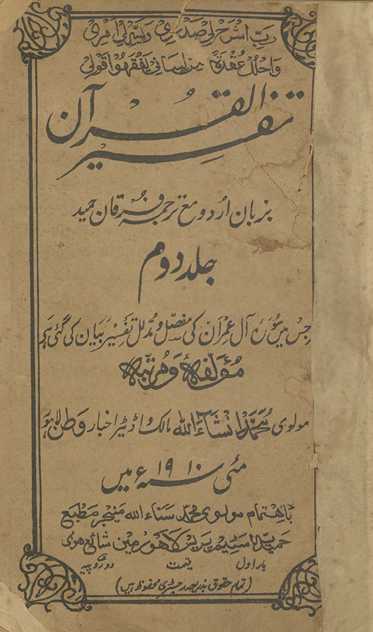 رَبِّ اشْرَحْ لِي صَدْرِي وَيَسِّرْ لِي أَمْرِي
وَاحْلُلْ عُقْدَةً مِنْ لِسَانِي يَفْقَهُوا قَوْلِي
تفسیر القرآن
بزبان اردو مع ترجمہ فرقان حمید
جلد دوم
جس میں سورۂ آل عمران کی مفصل و مدلل تفسیر بیان کی گئی ہے
مؤلفہ و مرتبہ
مولوی محمد انشاء اللہ مالک و اڈیٹر اخبار وطن لاہور
مئی سنہ ۱۹۱۰ء میں
باہتمام مولوی محمد سناء اللہ منیجر مطبع
حمیدیہ اسٹیم پریس لاہور میں شائع ہوئی
بار اول قیمت دو روپیہ
(تمام حقوق بذریعہ رجسٹری محفوظ ہیں)